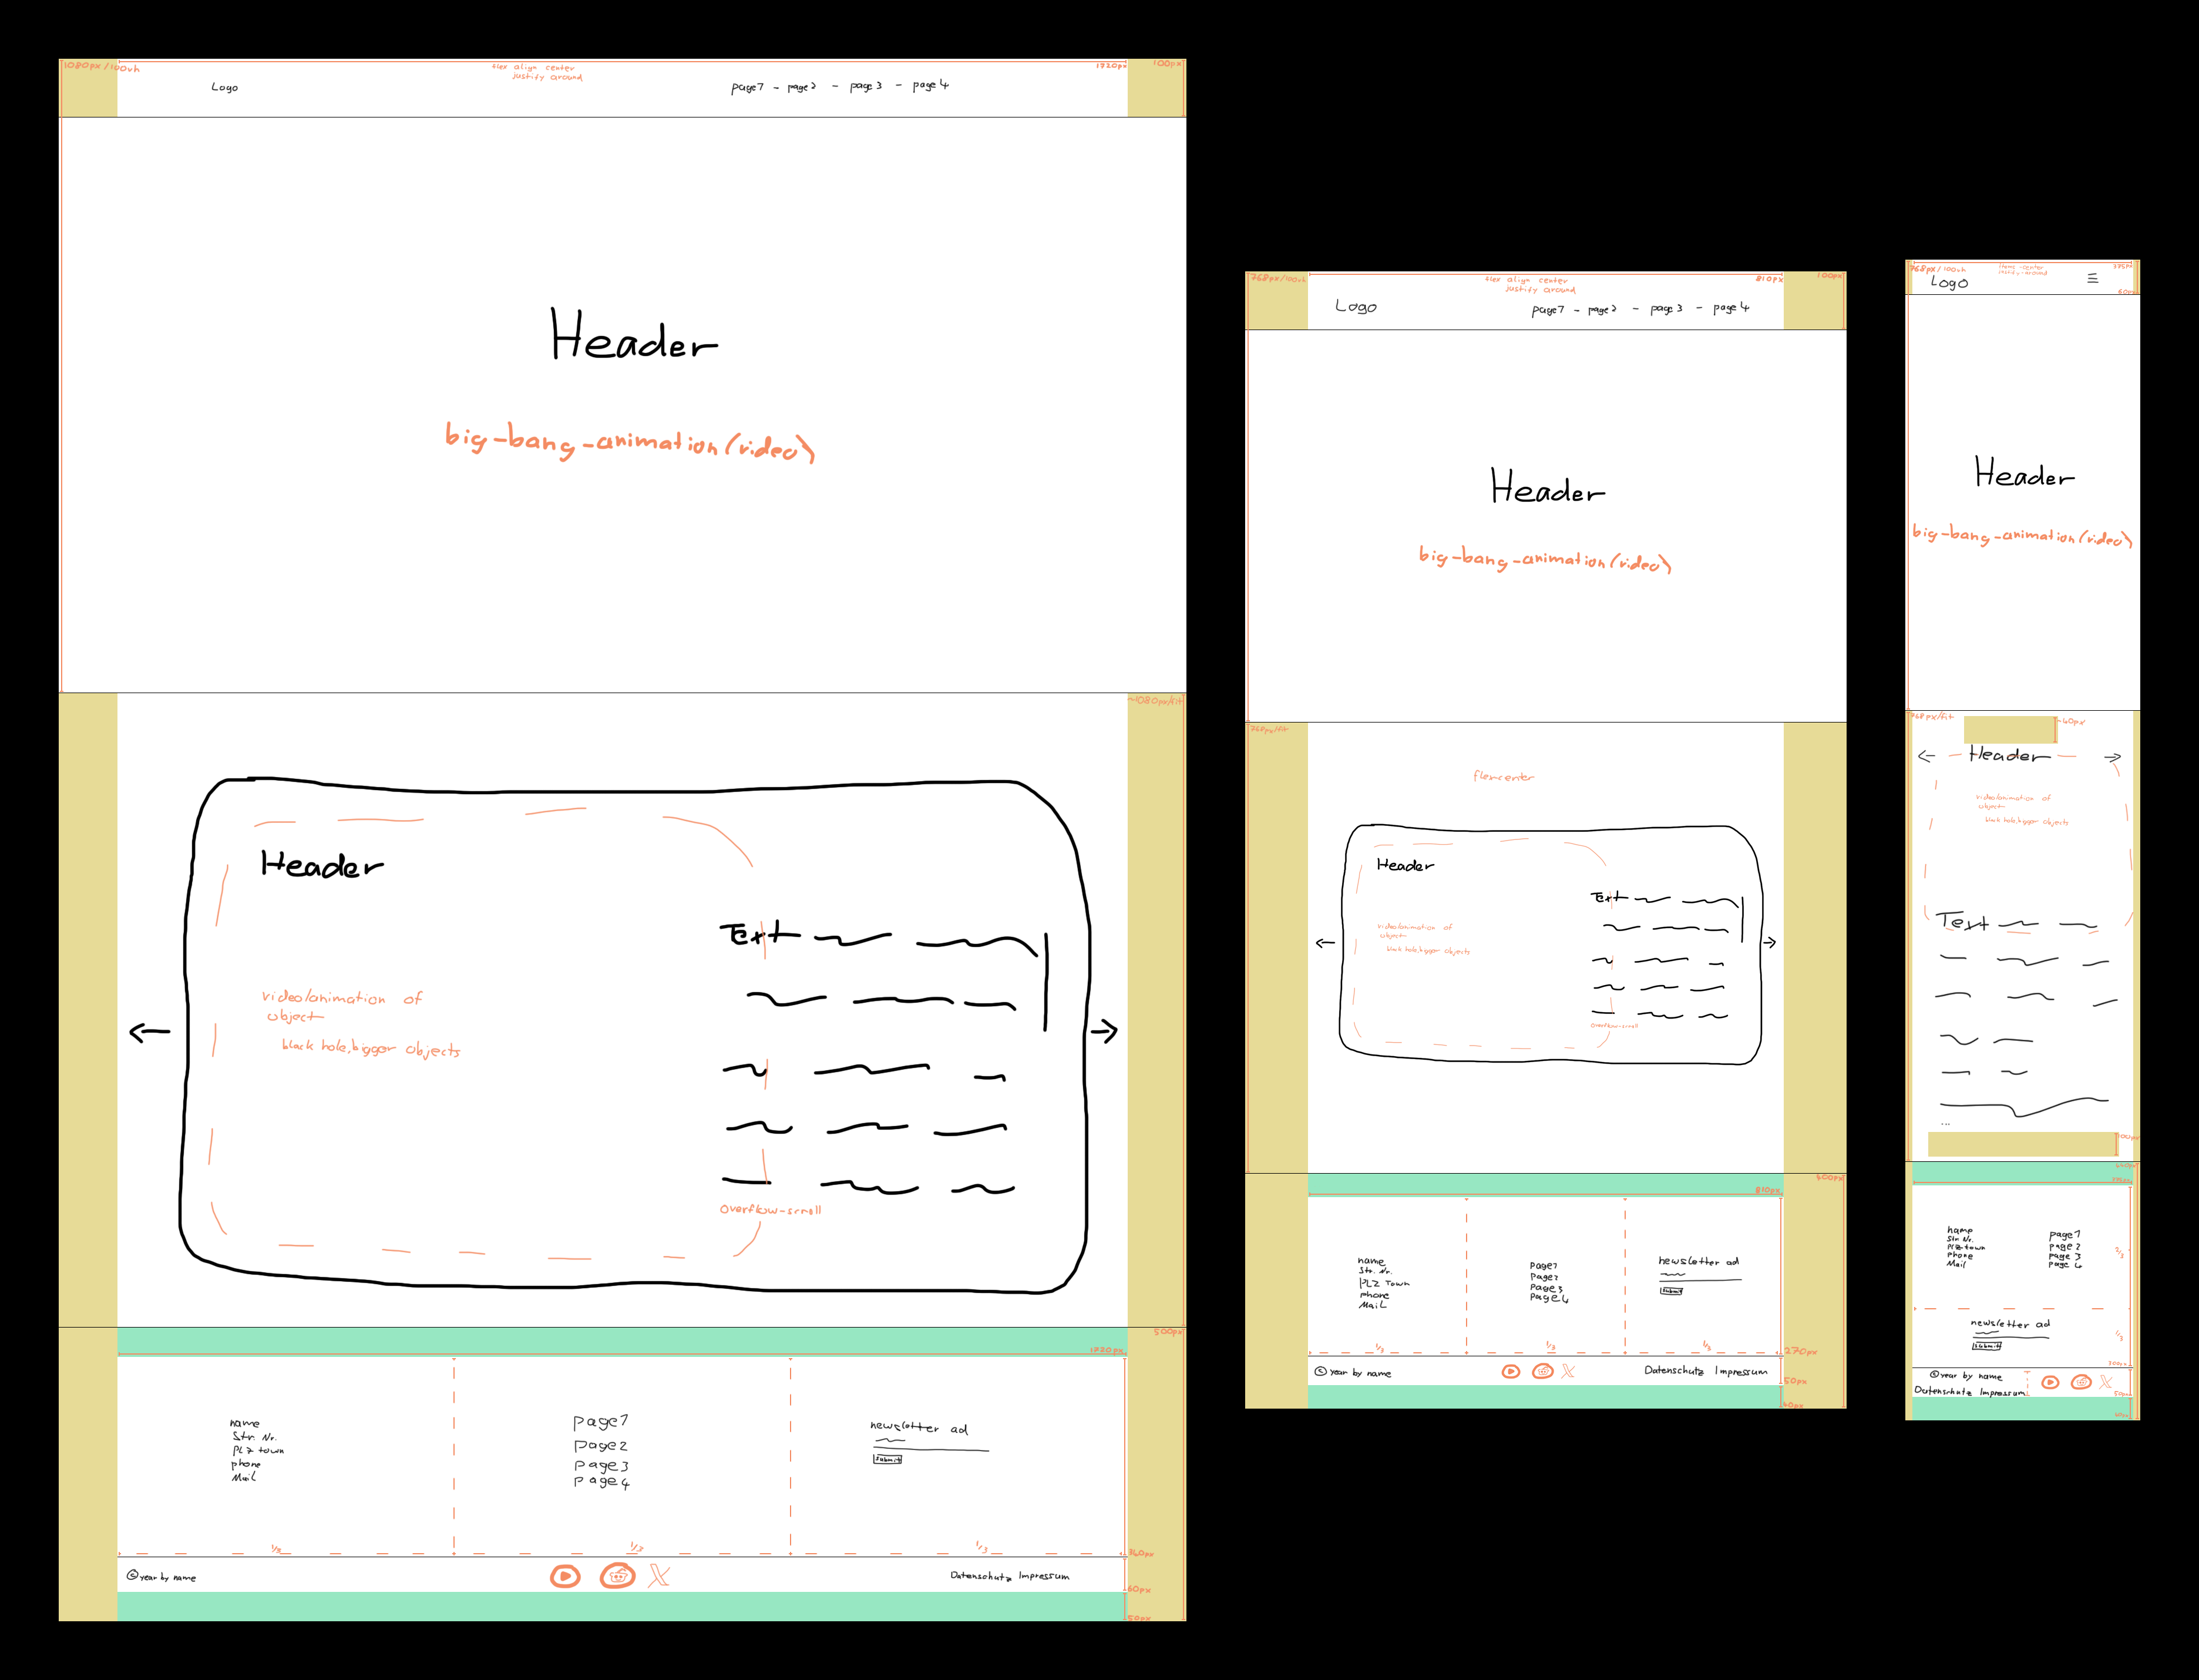 1080px/100vh
flex align center
justify around
1720px
100px
Logo
page1 - page2 - page3 - page4
Header
big-bang-animation(video)
~1080px/fit
Header
Text
video/animation of
object
black hole, bigger objects
overflow-scroll
500px
1720px
name
Str. Nr.
PLZ town
phone
Mail
page1
page2
page3
page4
newsletter ad
submit
1/3
1/3
1/3
340px
© year by name
Datenschutz Impressum
60px
50px
768px/100vh
flex align center
justify around
810px
100px
Logo
page1 - page2 - page3 - page4
Header
big-bang-animation(video)
768px/fit
flex-center
Header
Text
video/animation of
object
black hole, bigger objects
overflow-scroll
400px
810px
name
Str. Nr.
PLZ Town
phone
Mail
page1
page2
page3
page4
newsletter ad
submit
1/3
1/3
1/3
270px
© year by name
Datenschutz Impressum
50px
40px
768px/100vh
items-center
justify-around
375px
60px
Logo
Header
big-bang-animation(video)
768px/fit
~40px
Header
video/animation of
object
black hole, bigger objects
Text
...
100px
name
Str. Nr.
PLZ town
phone
Mail
page1
page2
page3
page4
2/3
newsletter ad
submit
1/3
300px
© year by name
Datenschutz Impressum
50px